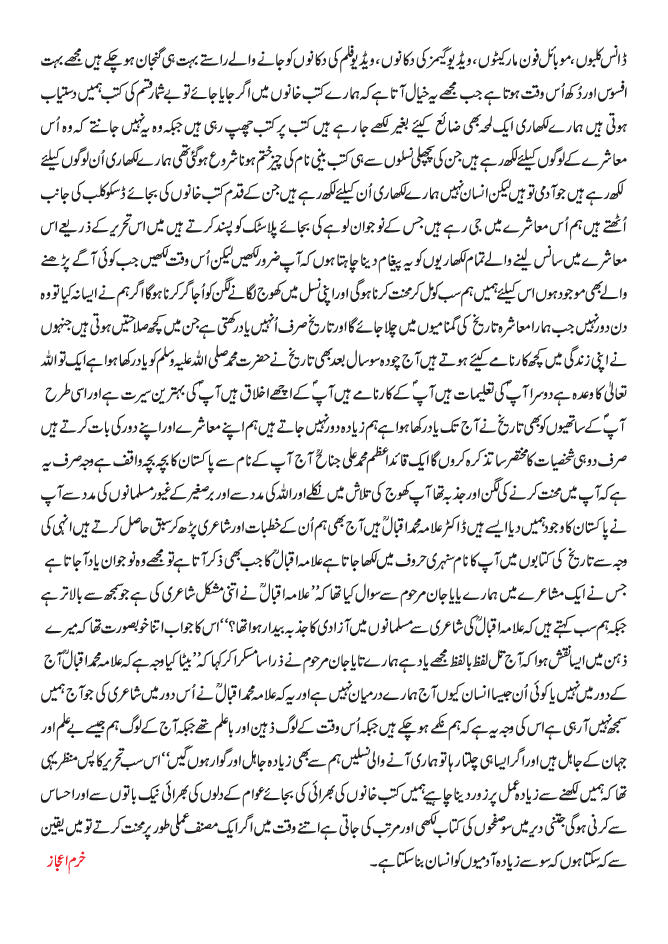 ڈانس کلبوں ،موبائل فون مارکیٹوں ، ویڈیو گیمز کی دکانوں ، ویڈیو فلم کی دکانوں کو جانے والے راستے بہت ہی گنجان ہو چکے ہیں مجھے بہت
افسوس اور دُکھ اُس وقت ہوتا ہے جب مجھے یہ خیال آتا ہے کہ ہمارے کتب خانوں میں اگر جایا جائے تو بے شمار قسم کی کتب ہمیں دستیاب
ہوتی ہیں ہمارے لکھاری ایک لمحہ بھی ضائع کیئے بغیر لکھے جا رہے ہیں کتب پر کتب چھپ رہی ہیں جبکہ وہ یہ نہیں جانتے کہ وہ اُس
معاشرے کے لوگوں کیلئے لکھ رہے ہیں جن کی پچھلی نسلوں سے ہی کتب بینی نام کی چیز ختم ہونا شروع ہو گئی تھی ہمارے لکھاری اُن لوگوں کیلئے
لکھ رہے ہیں جو آدمی تو ہیں لیکن انسان نہیں ہمارے لکھاری اُن کیلئے لکھ رہے ہیں جن کے قدم کتب خانوں کی بجائے ڈسکو کلب کی جانب
اُٹھتے ہیں ہم اُس معاشرے میں جی رہے ہیں جس کے نوجوان لوہے کی بجائے پلاسٹک کو پسند کرتے ہیں میں اس تحریر کے ذریعے اس
معاشرے میں سانس لینے والے تمام لکھاریوں کو یہ پیغام دینا چاہتا ہوں کہ آپ ضرور لکھیں لیکن اُس وقت لکھیں جب کوئی آگے پڑھنے
والے بھی موجود ہوں اس کیلئے ہمیں ہم سب کو مل کر محنت کرنا ہوگی اور اپنی نسل میں کھوج لگانے لگن کو اُجاگر کرنا ہوگا اگر ہم نے ایسا نہ کیا تو وہ
دن دور نہیں جب ہمارا معاشرہ تاریخ کی گمنامیوں میں چلا جائے گا اور تاریخ صرف اُنہیں یاد رکھتی ہے جن میں کچھ صلاحتیں ہوتی ہیں جنہوں
نے اپنی زندگی میں کچھ کارنامے کیئے ہوتے ہیں آج چودہ سو سال بعد بھی تاریخ نے حضرت محمد صلی اللہ علیہ وسلم کو یاد رکھا ہوا ہے ایک تو اللہ
تعالیٰ کا وعدہ ہے دوسرا آپؐ کی تعلیمات ہیں آپؐ کے کارنامے ہیں آپؐ کے اچھے اخلاق ہیں آپؐ کی بہترین سیرت ہے اور اسی طرح
آپؐ کے ساتھیوں کو بھی تاریخ نے آج تک یاد رکھا ہوا ہے ہم زیادہ دور نہیں جاتے ہیں ہم اپنے معاشرے اور اپنے دور کی بات کرتے ہیں
صرف دو ہی شخصیات کا مختصر سا تذکرہ کروں گا ایک قائداعظم محمد علی جناحؒ آج آپ کے نام سے پاکستان کا بچہ بچہ واقف ہے وجہ صرف یہ
ہے کہ آپ میں محنت کرنے کی لگن اور جذبہ تھا آپ کھوج کی تلاش میں نکلے اور اللہ کی مدد سے اور برصغیر کے غیور مسلمانوں کی مدد سے آپ
نے پاکستان کا وجود ہمیں دیا ایسے ہیں ڈاکٹر علامہ محمد اقبالؒ ہیں آج بھی ہم اُن کے خطبات اور شاعری پڑھ کر سبق حاصل کرتے ہیں انہی کی
وجہ سے تاریخ کی کتابوں میں آپ کا نام سنہری حروف میں لکھا جاتا ہے علامہ اقبالؒ کا جب بھی ذکر آتا ہے تو مجھے وہ نوجوان یاد آجاتا ہے
جس نے ایک مشاعرے میں ہمارے یایا جان مرحوم سے سوال کیا تھا کہ’’علامہ اقبالؒ نے اتنی مشکل شاعری کی ہے جو سمجھ سے بالا تر ہے
جبکہ ہم سب کہتے ہیں کہ علامہ اقبالؒ کی شاعری سے مسلمانوں میں آزادی کا جذبہ بیدار ہوا تھا؟‘‘ اس کا جواب اتنا خوبصورت تھا کہ میرے
ذہن میں ایسا نقش ہوا کہ آج تل لفظ بالفظ مجھے یاد ہے ہمارے تایا جان مرحوم نے ذرا سا مسکرا کر کہا کہ’’بیٹا کیا وجہ ہے کہ علامہ محمد اقبالؒ آج
کے دور میں نہیں یا کوئی اُن جیسا انسان کیوں آج ہمارے درمیان نہیں ہے اور یہ کہ علامہ محمد اقبالؒ نے اُس دور میں شاعری کی جو آج ہمیں
سمجھ نہیں آرہی ہے اس کی وجہ یہ ہے کہ ہم نکمے ہو چکے ہیں جبکہ اُس وقت کے لوگ ذہین اور باعلم تھے جبکہ آج کے لوگ ہم جیسے بے علم اور
جہان کے جاہل ہیں اور اگر ایسا ہی چلتا رہا تو ہماری آنے والی نسلیں ہم سے بھی زیادہ جاہل اور گوار ہوں گیں‘‘ اس سب تحریر کا پس منظر یہی
تھا کہ ہمیں لکھنے سے زیادہ عمل پر زور دینا چاہیے ہمیں کتب خانوں کی بھرائی کی بجائے عوام کے دلوں کی بھرائی نیک باتوں سے اور احساس
سے کرنی ہوگی جتنی دیر میں سو صفحوں کی کتاب لکھی اور مرتب کی جاتی ہے اتنے وقت میں اگر ایک مصنف عملی طور پر محنت کرے تو میں یقین
سے کہ سکتا ہوں کہ سو سے زیادہ آدمیوں کو انسان بنا سکتا ہے۔ خرم اعجاز